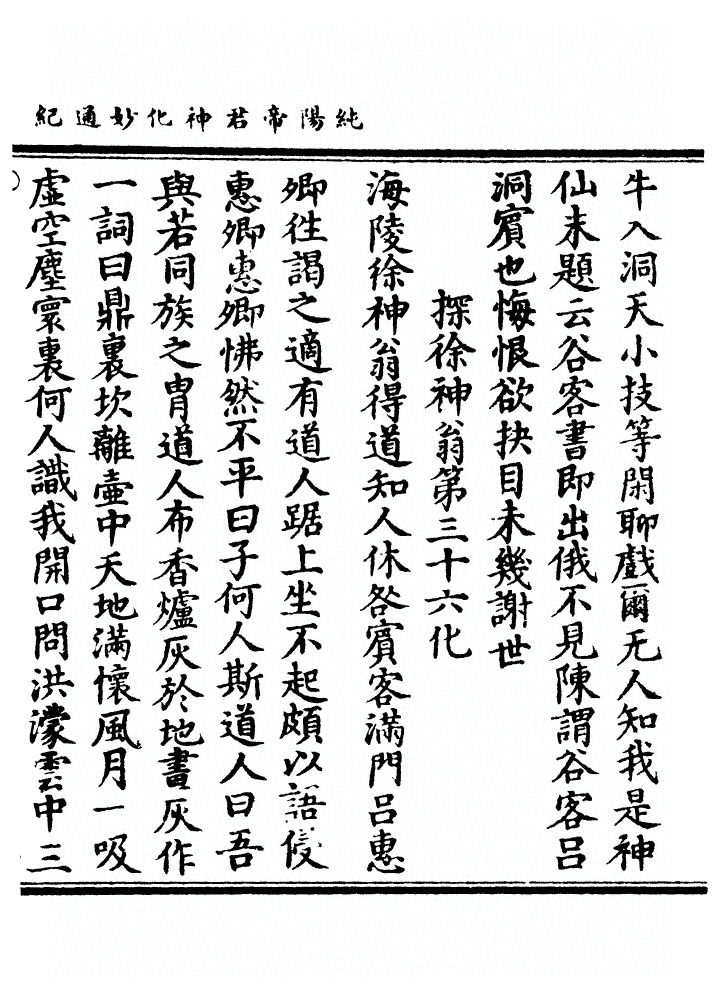 純陽帝君神化妙通紀
牛入洞天小技等閑聊戲爾无人知我是神
仙末題云谷客書即出俄不見陳謂谷客呂
洞賓也悔恨欲抉目未幾謝世
探徐神翁第三十六化
海陵徐神翁得道知人休咎賓客滿門呂惠
卿往謁之適有道人踞上坐不起頗以語侵
惠卿惠卿怫然不平曰子何人斯道人曰吾
與若同族之胄道人布香爐灰於地畫灰作
一詞曰鼎裏坎離壺中天地滿懷風月一吸
虛空塵寰裏何人識我開口問洪濛雲中三